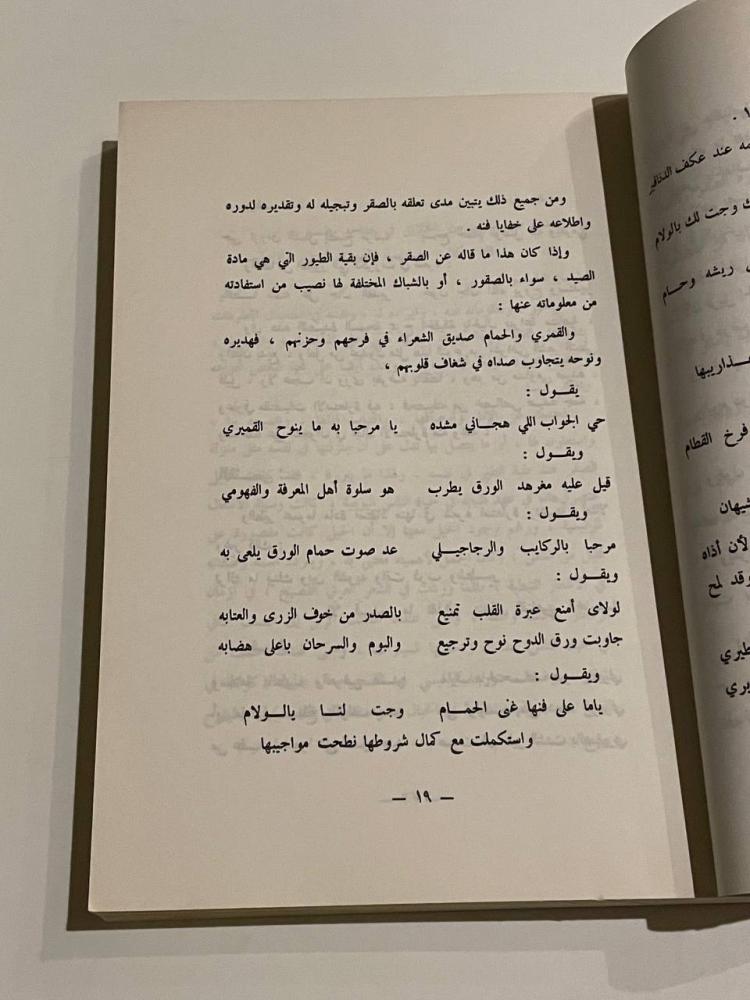 ومن جميع ذلك يتبين مدى تعلقه بالصقر وتبجيله له وتقديره لدوره
واطلاعه على خفايا فنه .
وإذا كان هذا ما قاله عن الصقر ، فإن بقية الطيور التي هي مادة
الصيد ، سواء بالصقور ، أو بالشباك المختلفة لها نصيب من استفادته
من معلوماته عنها :
والقمري والحمام صديق الشعراء في فرحهم وحزنهم ، فهديره
ونوحه يتجاوب صداه في شغاف قلوبهم ،
يقول :
حي الجواب اللي هجاني مشده يا مرحبا به ما ينوح القميري
ويقول :
قيل عليه مغرهد الورق يطرب هو سلوة أهل المعرفة والفهومي
ويقول :
مرحبا بالركايب والرجاجيلي عد صوت حمام الورق يلعى به
ويقول :
لولاى أمنع عبرة القلب تمنيع بالصدر من خوف الزرى والعتابه
جاوبت ورق الدوح نوح وترجيع والبوم والسرحان باعلى هضابه
ويقول :
ياما على فنها غنى الحمام وجت لنا يالولام
واستكملت مع كمال شروطها نطحت مواجيبها
— ١٩ —
١ .
عند عكف
وجت لك بالولام
ريشه وحام
فرخ القطام
شيهان
لأن أذاه
وقد لمح